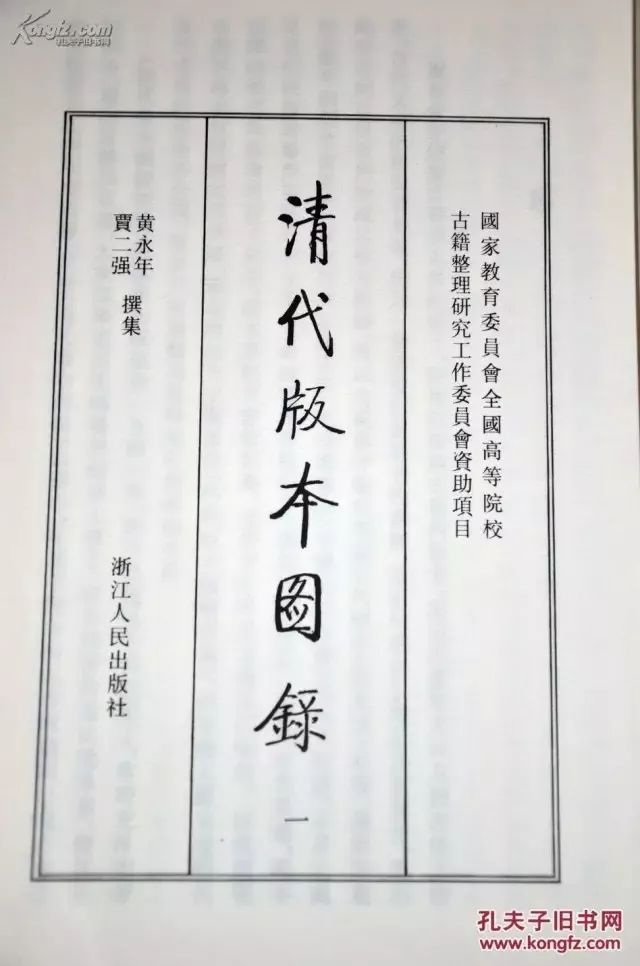 Kongfz.com
孔夫子旧书网
國家教育委員會全國高等院校
古籍整理研究工作委員會資助項目
清代版本图錄
一
黄永年
賈二强
撰集
浙江人民出版社
孔夫子旧书网
www.kongfz.com